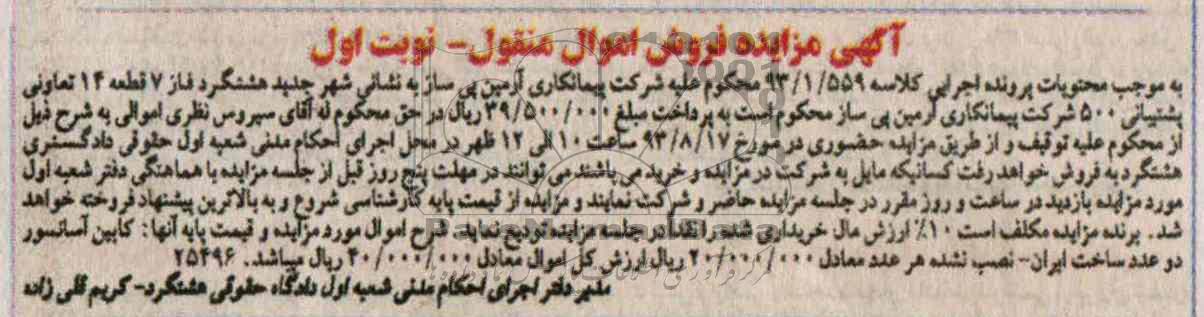 آگهی مزایده فروش اموال منقول- نوبت اول
به موجب محتویات پرونده اجرایی کلاسه ۹۳/۱/۵۵۹ محکوم علیه شرکت پیمانکاری آرمین پی ساز به نشانی شهر جدید هشتگرد فاز ۷ قطعه ۱۴ تعاونی
پشتیبانی ۵۰۰ شرکت پیمانکاری آرمین پی ساز محکوم است به پرداخت مبلغ ۳۹/۵۰۰/۰۰۰ ریال در حق محکوم له آقای سیروس نظری اموالی به شرح ذیل
از محکوم علیه توقیف و از طریق مزایده حضوری در مورخ ۹۳/۸/۱۷ ساعت ۱۰ الی ۱۲ ظهر در محل اجرای احکام مدنی شعبه اول حقوقی دادگستری
هشتگرد به فروش خواهد رفت کسانیکه مایل به شرکت در مزایده و خرید می باشند می توانند در مهلت پنج روز قبل از جلسه مزایده با هماهنگی دفتر شعبه اول
مورد مزایده بازدید در ساعت و روز مقرر در جلسه مزایده حاضر و شرکت نمایند و مزایده از قیمت پایه کارشناسی شروع و به بالاترین پیشنهاد فروخته خواهد
شد. برنده مزایده مکلف است ۱۰٪ ارزش مال خریداری شده را نقدا در جلسه مزایده تودیع نماید. شرح اموال مورد مزایده و قیمت پایه آنها: کابین آسانسور
دو عدد ساخت ایران- نصب نشده هر عدد معادل ۲۰/۰۰۰/۰۰۰ ریال ارزش کل اموال معادل ۴۰/۰۰۰/۰۰۰ ریال میباشد. ۲۵۴۹۶
مدیر دفتر اجرای احکام مدنی شعبه اول دادگاه حقوقی هشتگرد- کریم قلی زاده